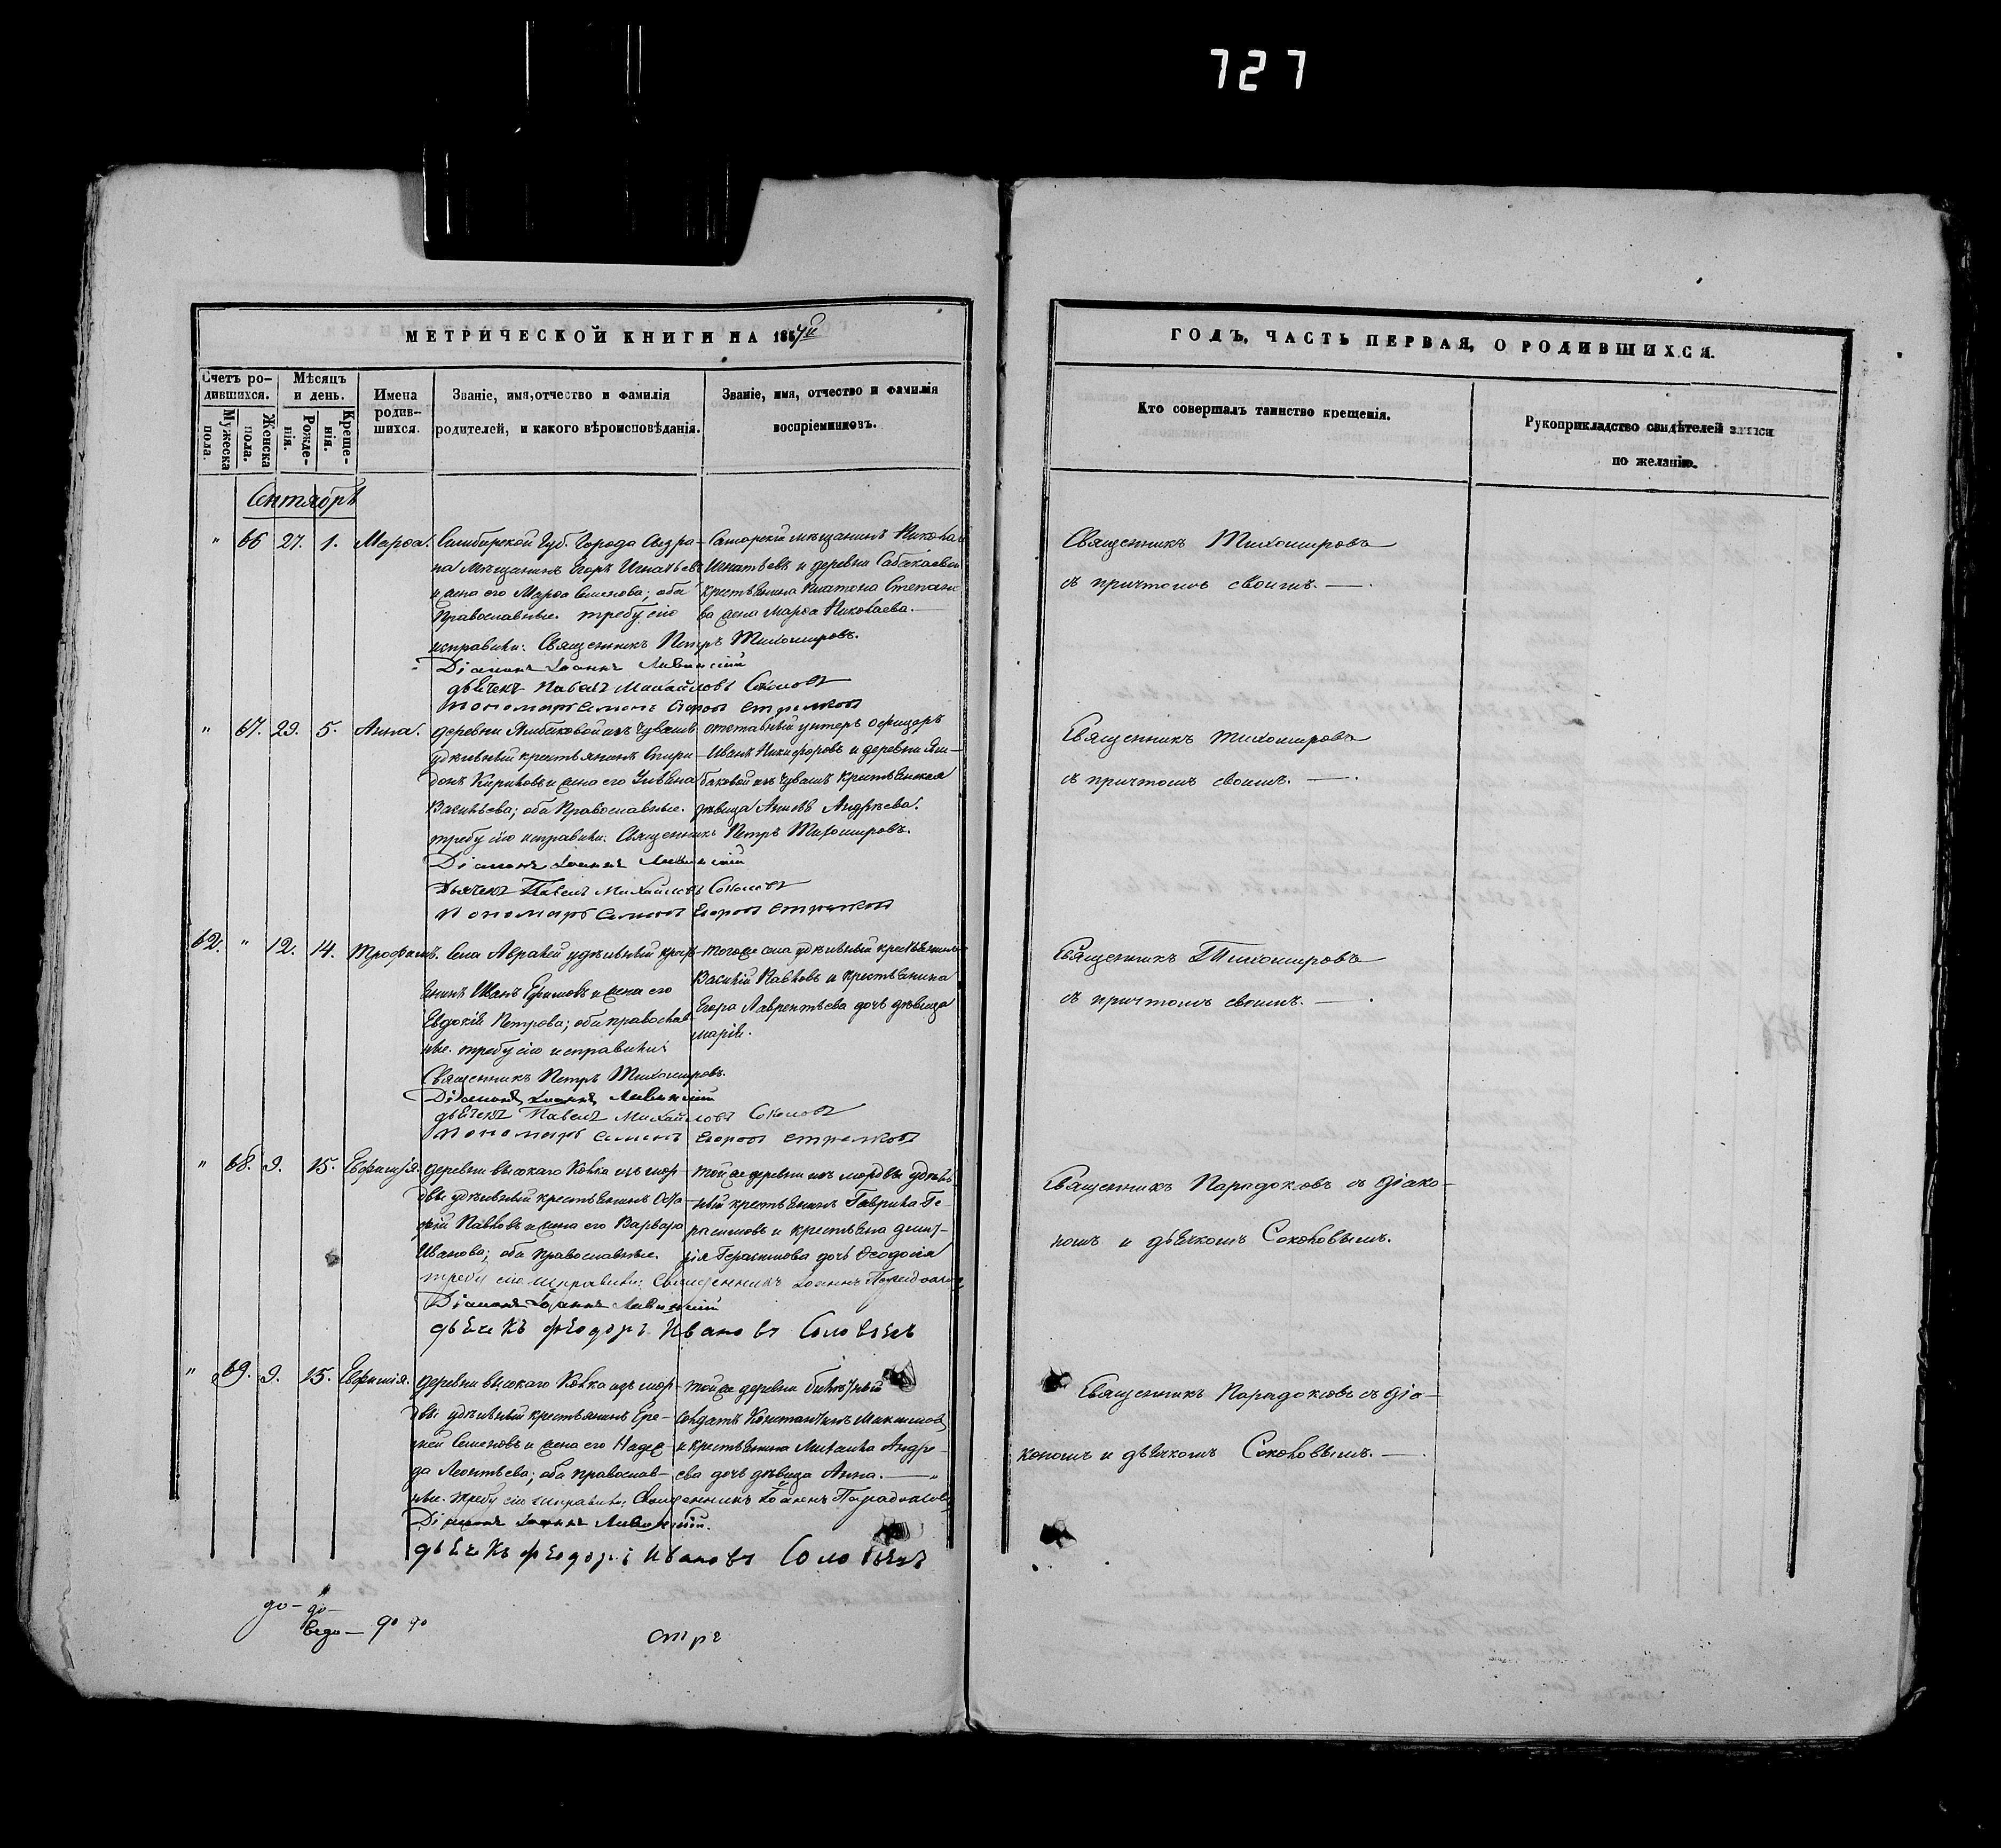 727
МЕТРИЧЕСКОЙ КНИГИ НА 1867й
ГОДЪ, ЧАСТЬ ПЕРВАЯ, О РОДИВШИХСЯ.
Счетъ ро-
дившихся.
Мужеска
пола.
Женска
пола.
Мѣсяцъ
и день.
Рожде-
нія.
Креще-
нія.
Имена
родив-
шихся.
Званіе, имя, отчество и фамилія
родителей, и какого вѣроисповѣданія.
Званіе, имя, отчество и фамилія
воспріемниковъ.
Кто совершалъ таинство крещенія.
Рукоприкладство свидѣтелей записи
по желанію.
Сентябрь
" 66 27. 1. Марѳа.
Симбирской Губ. Города Сызра-
на Мѣщанинъ Егоръ Игнатьевъ
и жена его Марѳа Семенова; оба
Православные. требу сію
исправили: Священникъ Петръ Тихомировъ.
Діаконъ Іоаннъ
дьячекъ Павелъ Михайловъ Соколовъ
Пономарь Симеонъ Егоровъ
Самарскій мѣщанинъ Николай
Игнатьевъ и деревни Сабакаевой
крестьянина Платона Степано
ва жена Марѳа Николаева.
Священникъ Тихомировъ
съ причтомъ своимъ.
" 67. 29. 5. Анна.
деревни Ямбаковой изъ Чувашъ
удѣльный крестьянинъ Спири-
донъ Кириловъ и жена его Ульяна
Васильева; оба Православные.
требу сію исправили: Священникъ Петръ Тихомировъ.
Діаконъ Іоаннъ
Дьячекъ Павелъ Михайловъ Соколовъ
Пономарь Симеонъ Егоровъ
отставный унтеръ офицеръ
Иванъ Никифоровъ и деревни Ям-
баковой изъ Чувашъ Крестьянская
дѣвица Анна Андреева.
Священникъ Тихомировъ
съ причтомъ своимъ.
62. " 12. 14. Трофимъ.
Села Авралей удѣльный кресть-
янинъ Иванъ Ефимовъ и жена его
Евдокія Петрова; оба православ-
ные. требу сію исправили:
Священникъ Петръ Тихомировъ.
Діаконъ Іоаннъ
дьячекъ Павелъ Михайловъ Соколовъ
Пономарь Симеонъ Егоровъ
Тогоже села удѣльный крестьянинъ
Василій Павловъ и крестьянина
Егора Лаврентьева дочь дѣвица
Марія.
Священникъ Тихомировъ
съ причтомъ своимъ.
" 68. 9. 15. Евфимія.
деревни высокаго Колка изъ мор-
двы удѣльный крестьянинъ
Павловъ и жена его Варвара
Иванова; оба православные.
требу сію исправили: Священникъ Іоаннъ Парадоксовъ
Діаконъ Іоаннъ
дьячекъ Феодоръ Ивановъ
Тойже деревни изъ мордвы удѣль-
ный крестьянинъ Гаврила Ге-
расимовъ и крестьяна
Герасимова дочь Ѳеодосія
Священникъ Парадоксовъ съ Діако-
номъ и дьячкомъ Соколовымъ.
" 69. 9. 15. Евфимія.
деревни высокаго Колка изъ мор-
двы удѣльный крестьянинъ Ере-
мей Семеновъ и жена его Надеж-
да Леонтьева; оба православ-
ные. требу сію исправили: Священникъ Іоаннъ Парадоксовъ
Діаконъ Іоаннъ
дьячекъ Феодоръ Ивановъ
тойже деревни билетный
солдатъ Константинъ Максимовъ
и крестьянина Михаила Андре-
ева дочь дѣвица Анна.
Священникъ Парадоксовъ съ Діа-
кономъ и дьячкомъ Соколовымъ.
до- до-